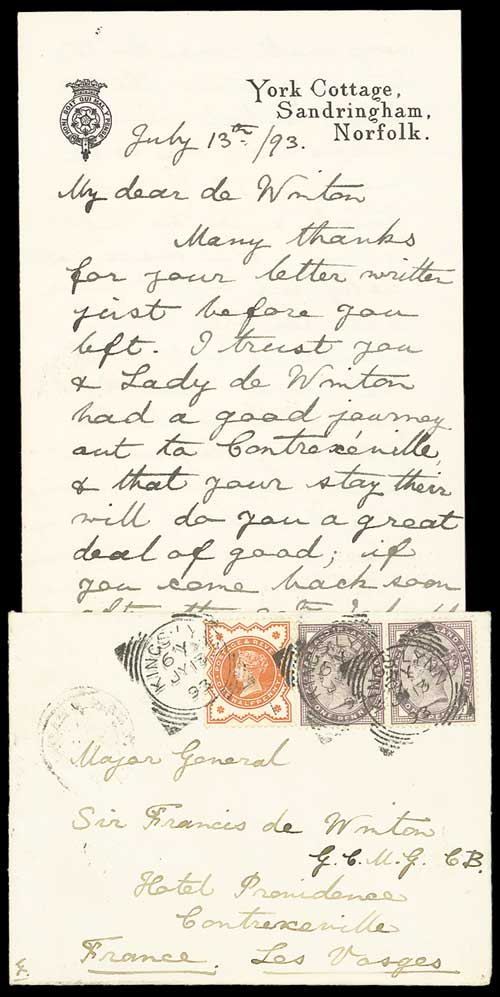 HONI SOIT QUI MAL Y PENSE
York Cottage,
Sandringham,
Norfolk.
July 13th/93.
My dear de Winton
Many thanks
for your letter written
just before you
left. I trust you
& Lady de Winton
had a good journey
out to Contrexéville,
& that your stay their
will do you a great
deal of good; if
you come back soon
after the
KING'S LYNN
JY 13
93
POSTAGE & REVENUE
HALFPENNY
ONE PENNY
LYNN
13
AND REVENUE
Major General
Sir Francis de Winton
G.C.M.G. C.B.
Hotel Providence
Contrexeville
France. Les Vosges